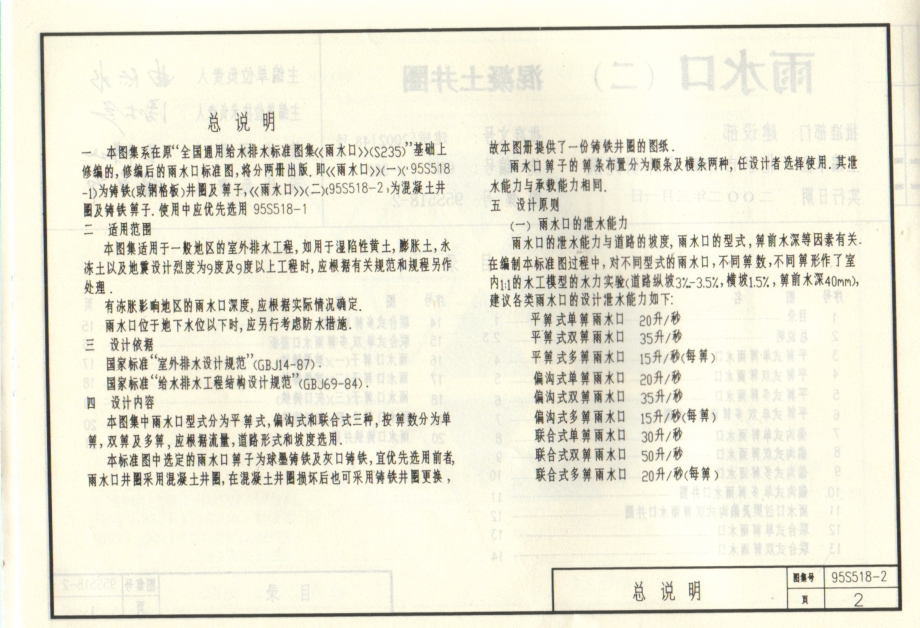 总说明
一 . 本图集系在原"全国通用给水排水标准图集<<雨水口>>(S235)"基础上
修编的, 修编后的雨水口标准图, 将分两册出版. 即<<雨水口>>(一)(95S518
-1)为铸铁(或钢格板)井圈及箅子, <<雨水口>>(二)(95S518-2, 为混凝土井
圈及铸铁箅子. 使用中应优先选用 95S518-1
二 适用范围
本图集适用于一般地区的室外排水工程, 如用于湿陷性黄土, 膨胀土, 永
冻土以及地震设计烈度为9度及9度以上工程时, 应根据有关规范和规程另作
处理 .
有冻胀影响地区的雨水口深度, 应根据实际情况确定.
雨水口位于地下水位以下时, 应另行考虑防水措施.
三 设计依据
国家标准"室外排水设计规范"(GBJ14-87) .
国家标准"给水排水工程结构设计规范"(GBJ69-84) .
四 设计内容
本图集中雨水口型式分为平箅式, 偏沟式和联合式三种, 按箅数分为单
箅, 双箅及多箅, 应根据流量, 道路形式和坡度选用.
本标准图中选定的雨水口箅子为球墨铸铁及灰口铸铁, 宜优先选用前者,
雨水口井圈采用混凝土井圈, 在混凝土井圈损坏后也可采用铸铁井圈更换 ,
故本图册提供了一份铸铁井圈的图纸.
雨水口箅子的箅条布置分为顺条及横条两种, 任设计者选择使用. 其泄
水能力与承载能力相同.
五 设计原则
(一) 雨水口的泄水能力
雨水口的泄水能力与道路的坡度, 雨水口的型式, 箅前水深等因素有关.
在编制本标准图过程中, 对不同型式的雨水口, 不同箅数, 不同箅形作了室
内1:1的水工模型的水力实验(道路纵坡3‰-3.5%, 横坡1.5%, 箅前水深40mm),
建议各类雨水口的设计泄水能力如下:
平箅式单箅雨水口 20升/秒
平箅式双箅雨水口 35升/秒
平箅式多箅雨水口 15升/秒(每箅)
偏沟式单箅雨水口 20升/秒
偏沟式双箅雨水口 35升/秒
偏沟式多箅雨水口 15升/秒(每箅)
联合式单箅雨水口 30升/秒
联合式双箅雨水口 50升/秒
联合式多箅雨水口 20升/秒(每箅)
总说明
图集号 95S518-2
页 2